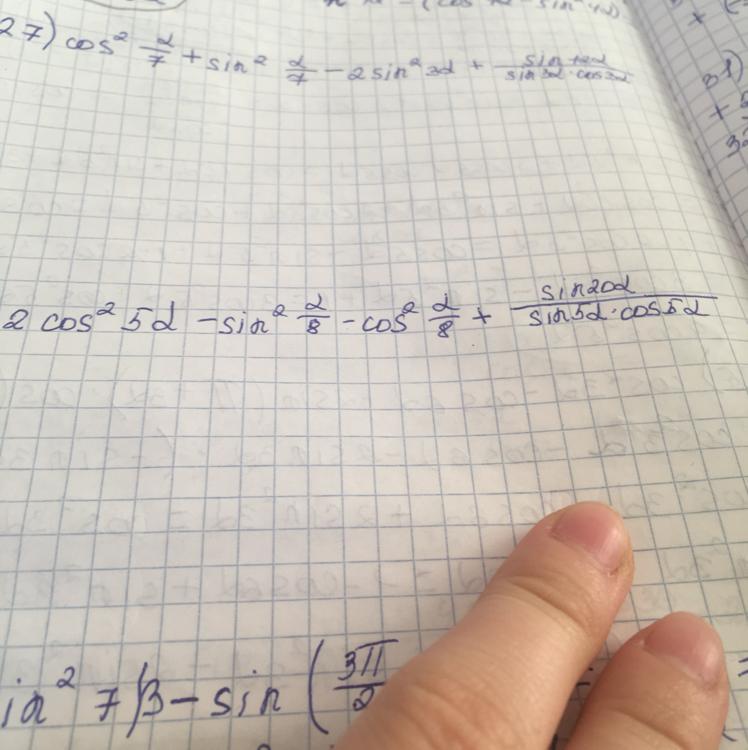 27) cos² α/7 + sin² α/7 - 2 sin² 3α + sin12α/(sin3α·cos3α)
2 cos² 5α - sin² α/8 - cos² α/8 + sin20α/(sin5α·cos5α)
in² 7β - sin (3π/2